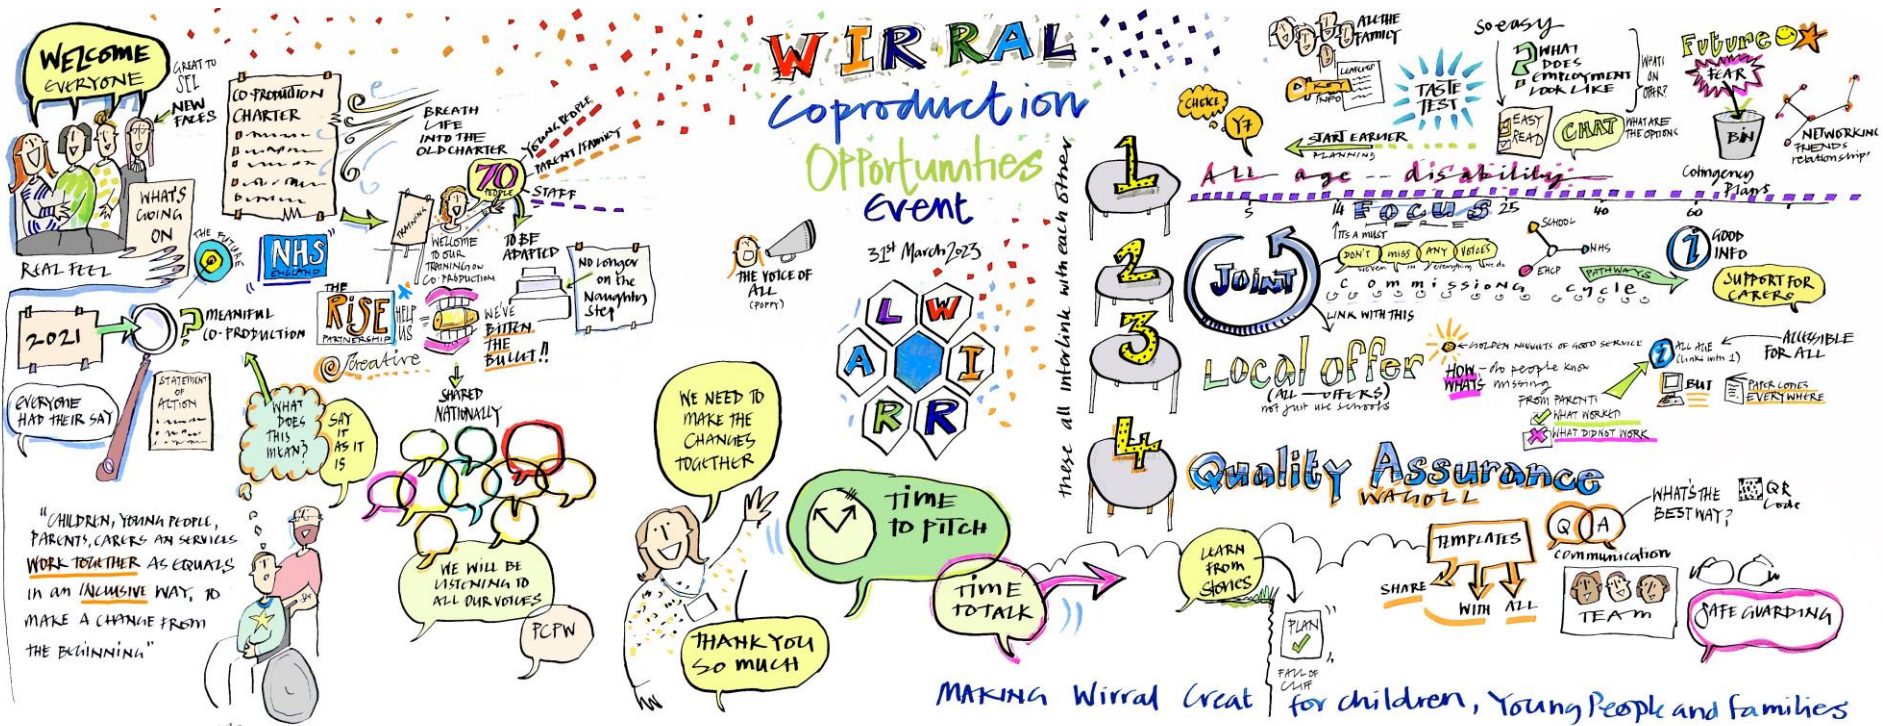 WELCOME
EVERYONE
GREAT TO
SEE
NEW
FACES
WHAT'S
GOING
ON
REAL FEEL
CO-PRODUCTION
CHARTER
BREATH
LIFE
INTO THE
OLD CHARTER
70
PEOPLE
YOUNG PEOPLE
PARENT/FAMILY
STAFF
TRAINING
WELCOME
TO OUR
TRAINING ON
CO-PRODUCTION
TO BE
ADAPTED
NO longer
on the
Naughty
Step
THE FUTURE
NHS
ENGLAND
2021
?
MEANIFUL
CO-PRODUCTION
THE
RISE
PARTNERSHIP
HELP
US
Creative
WE'VE
BITTEN
THE
BULLET!!
SHARED
NATIONALLY
EVERYONE
HAD THEIR SAY
STATEMENT
OF
ACTION
WHAT
DOES
THIS
MEAN?
SAY
IT
AS IT
IS
"CHILDREN, YOUNG PEOPLE,
PARENTS, CARERS AN SERVICES
WORK TOGETHER AS EQUALS
in an INCLUSIVE WAY, TO
MAKE A CHANGE FROM
THE BEGINNING"
WE WILL BE
LISTENING TO
ALL OUR VOICES
PCPW
WIRRAL
Coproduction
Opportunities
Event
31st March 2023
THE VOICE OF
ALL
(POPPY)
L W
A I
R R
WE NEED TO
MAKE THE
CHANGES
TOGETHER
THANK YOU
SO MUCH
TIME
TO PITCH
TIME
TO TALK
these all interlink with each other
1
ALL THE
FAMILY
INFO
LEAFLETS
CHOICE
Y7
START EARLIER
PLANNING
TASTE
TEST
so easy
? WHAT
DOES
EMPLOYMENT
LOOK LIKE
WHATS
ON
OFFER?
EASY
READ
CHAT
WHAT ARE
THE OPTIONS
Future
FEAR
BIN
NETWORKING
FRIENDS
relationships
Contingency
Plans
ALL age -- disability
5 14 25 40 60
FOCUS
2
JOINT
ITS A MUST
DON'T MISS ANY VOICES
woven in everything needs
commissiong cycle
SCHOOL
NHS
EHCP
PATHWAYS
i
GOOD
INFO
SUPPORT FOR
CARERS
LINK WITH THIS
3
Local offer
(ALL - OFFERS)
not just use schools
GOLDEN NUGGETS OF GOOD SERVICE
HOW - do people know
WHATS missing
FROM PARENTS
WHAT WORKED
WHAT DID NOT WORK
i
ALL AGE
(links with 1)
ACCESSIBLE
FOR ALL
BUT
PAPER COPIES
EVERYWHERE
4
Quality Assurance
WAGOLL
LEARN
FROM
Stories
PLAN
FALL OF
CLIFF
TEMPLATES
SHARE
WITH ALL
Q A
communication
WHAT'S THE
BEST WAY?
QR
Code
TEAM
SAFE GUARDING
MAKING Wirral Great for children, Young People and families